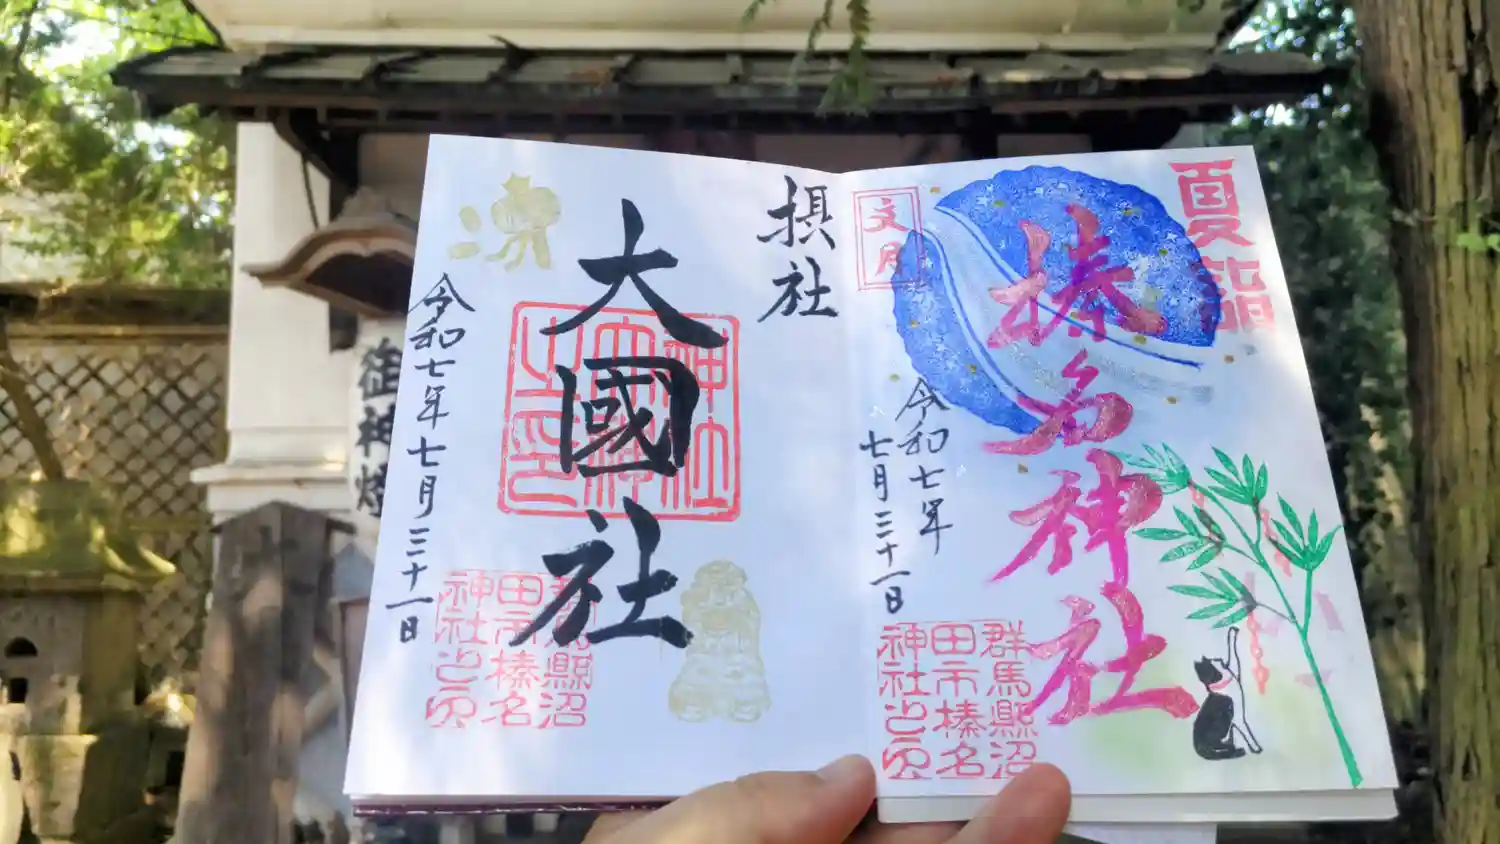 夏詣
榛名神社
文月
令和七年
七月三十一日
群馬縣沼
田市榛名
神社之印
摂社
大國社
神社
大國神
之印
令和七年七月三十一日
群馬縣沼
田市榛名
神社之印
御神燈